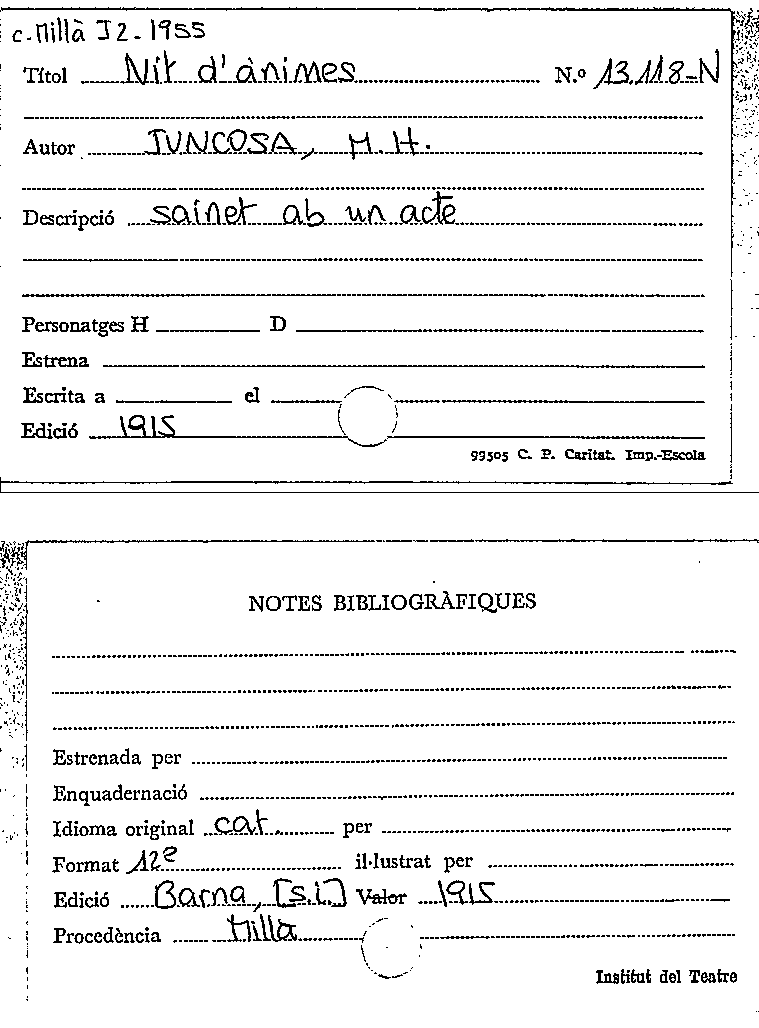 c. Millà J2-1955
Títol Nit d'ànimes N.º 13.118-N
Autor JUNCOSA, M.H.
Descripció sainet ab un acte
Personatges H D
Estrena
Escrita a el
Edició 1915
99505 C. P. Caritat. Imp.-Escola
NOTES BIBLIOGRÀFIQUES
Estrenada per
Enquadernació
Idioma original cat. per
Format 12º il·lustrat per
Edició Barna, [s.i.] Valor 1915
Procedència Millà
Institut del Teatre